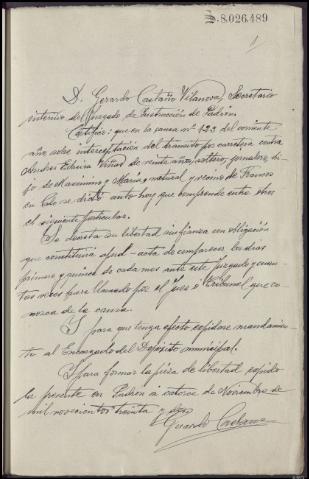 8.026.489
1
D. Gerardo Castaño Vilanova, Secretario
interino del Juzgado de Instrucción de Padrón.
Certifico: que en la causa nº 123 del corriente
año sobre interceptación del tránsito por carretera contra
Andres Viñas de veinte años, soltero, jornalero, hi-
jo de Maximino y María, natural y vecino de
en ésta se dictó auto hoy que comprende entre otros
el siguiente particular.
Se decreta su libertad sin fianza con obligación
que constituirá apud-acta de comparecer los días
primero y quince de cada mes ante este Juzgado y cuan-
tas veces fuere llamado por el Juez o Tribunal que co-
nozca de la causa.
Y para que tenga efecto expídase mandamien-
to al Encargado del Depósito municipal.
Y para formar la pieza de libertad expido
la presente en Padrón a catorce de Noviembre de
mil novecientos treinta y dos
Gerardo Castano